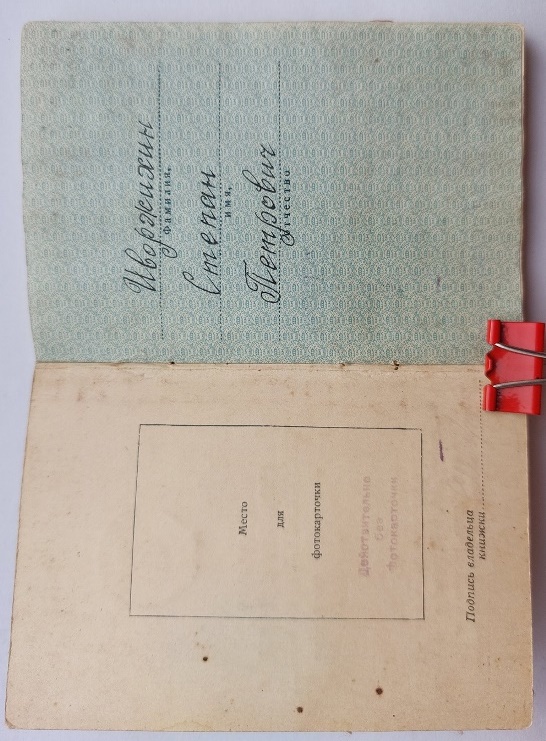 Место
для
фотокарточки
Действительно
без
фотокарточки
Подпись владельца
книжки
Иворжихин
Фамилия,
Степан
имя,
Петрович
отчество